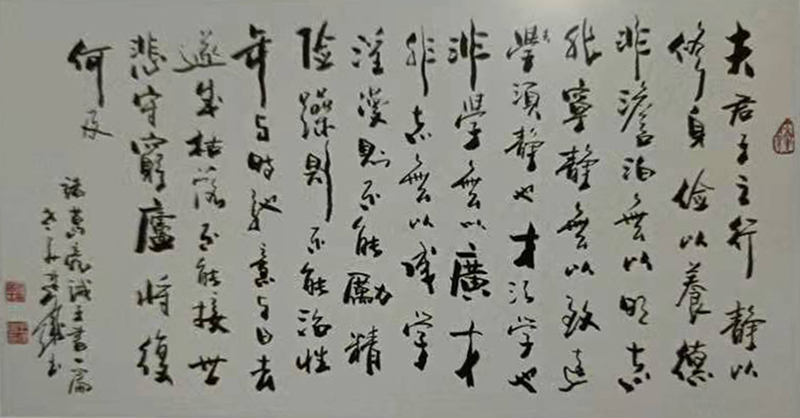 夫君子之行静以
修身俭以養德
非澹泊無以明志
非寧静無以致遠
夫學須静也才须学也
非學無以廣才
非志無以成学
淫漫则不能勵精
险躁则不能治性
年与时馳意与日去
遂成枯落不能接世
悲守窮廬将復
何及
诸葛亮诫子書一篇